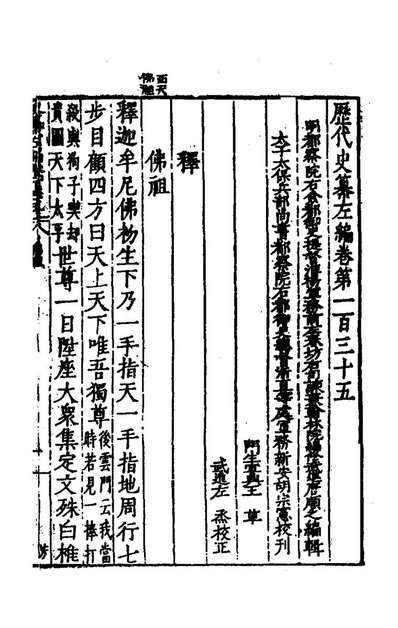 歷代史纂左編卷第一百三十五
明都察院右僉都御史提督淮揚軍務前左春坊右司諫兼翰林院編修唐順之編輯
太子太保兵部尚書都察院右都御史總督浙直等處軍務新安胡宗憲校刊
門生 王革
武進左烝校正
釋
佛祖
西天
佛祖
釋迦牟尼佛初生下乃一手指天一手指地周行七
步目顧四方曰天上天下唯吾獨尊後雲門云我當
時若見一棒打
殺與狗子喫却
貴圖天下太平世尊一日陞座大衆集定文殊白椎